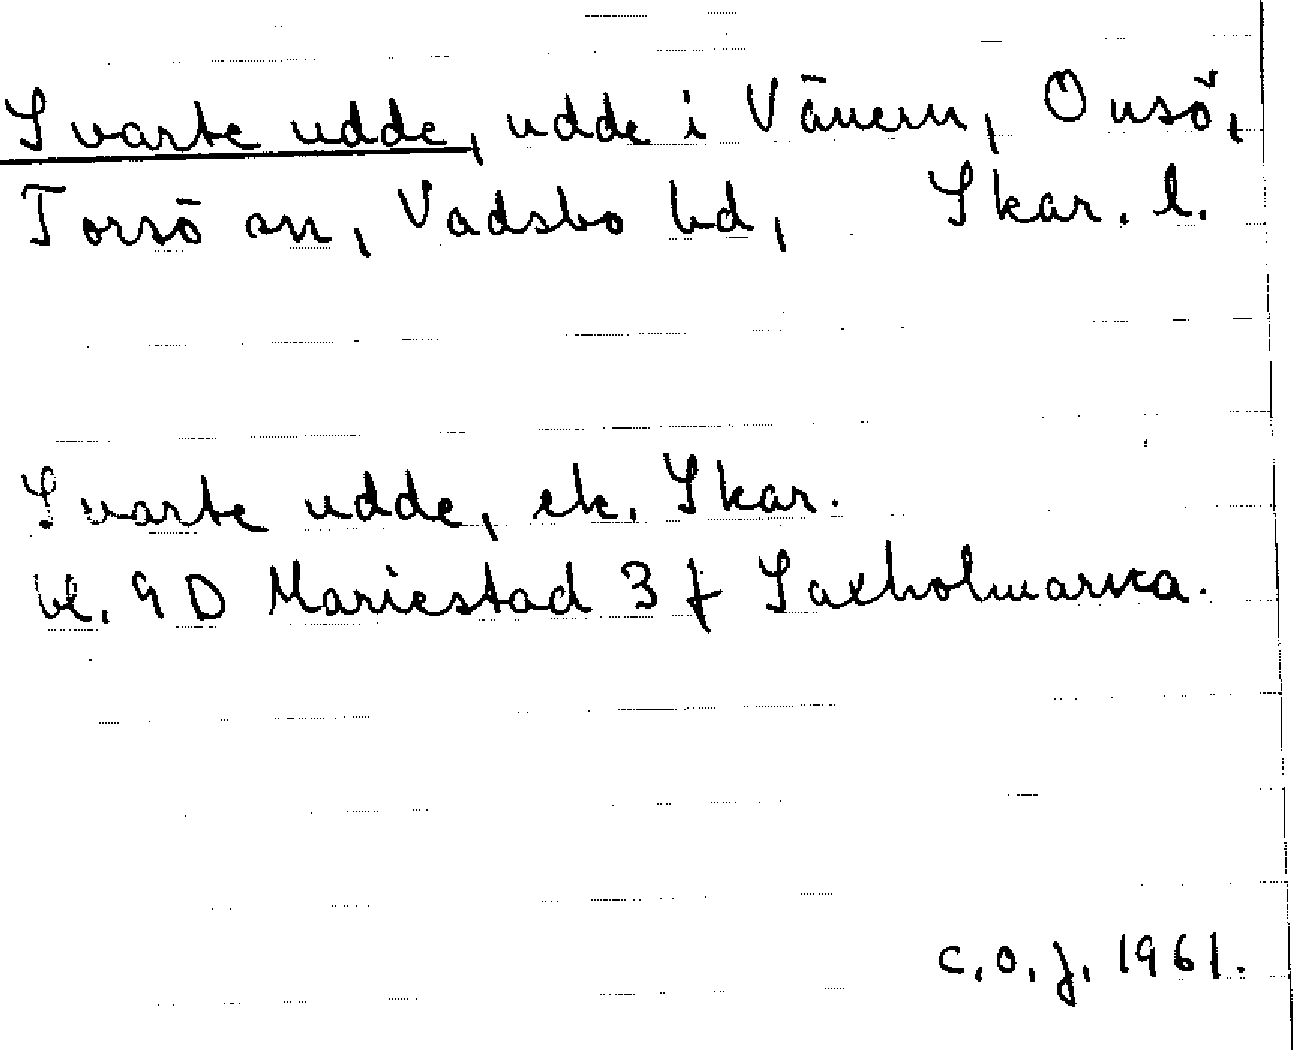 Svarte udde, udde i Vänern, Onsö,
Torsö sn, Vadsbo hd, Skar. l.
Svarte udde, ek. Skar.
bl. 9 D Mariestad 3 f Saxholmarna.
c.o.j. 1961.